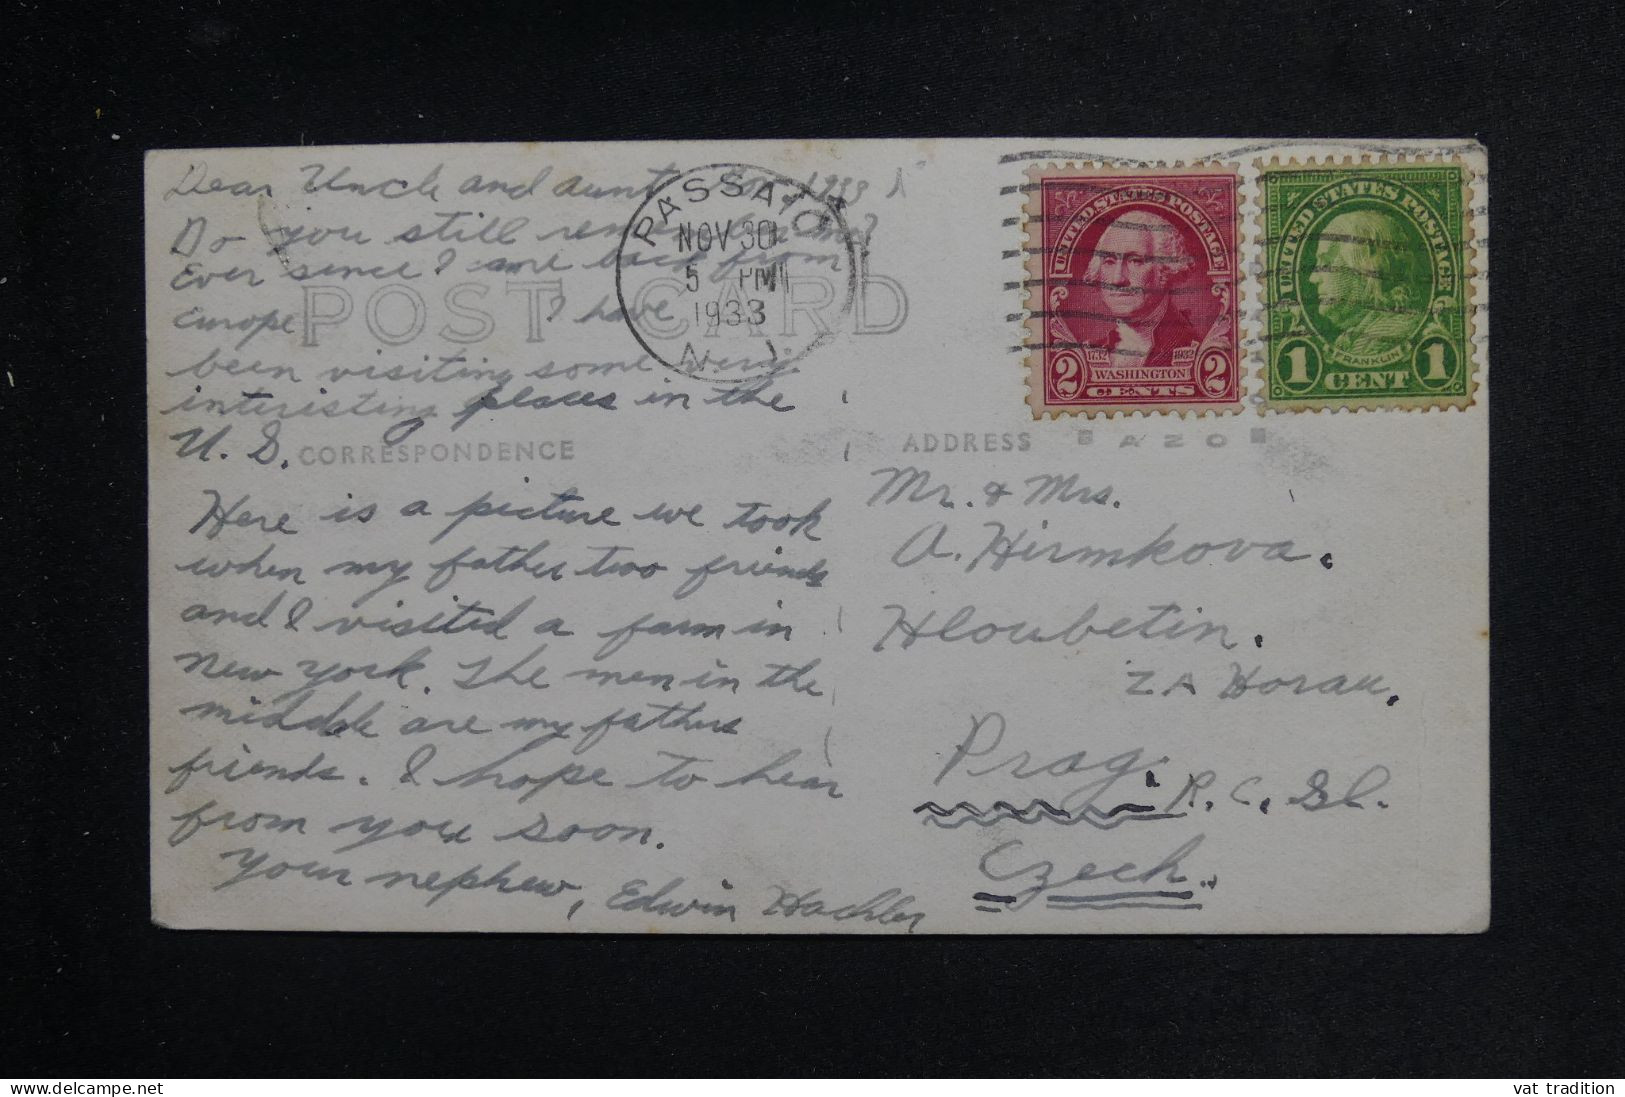 Dear Uncle and aunt 1933
Do you still remember me?
Ever since I am back from
Europe I have
been visiting some very
interisting places in the
U. S.
Here is a picture we took
when my father two friends
and I visited a farm in
New York. The men in the
middle are my fathers
friends. I hope to hear
from you soon.
Your nephew, Edwin Hachler
POST CARD
CORRESPONDENCE
PASSAIC
NOV 30
5 PM
1933
N. J.
UNITED STATES POSTAGE
1732 1932
WASHINGTON
2 CENTS 2
UNITED STATES POSTAGE
FRANKLIN
1 CENT 1
ADDRESS
AZO
Mr. & Mrs.
A. Hirmkova.
Hloubetin.
ZA Horau.
Prag.
R. C. Sl.
Czech.
vat tradition